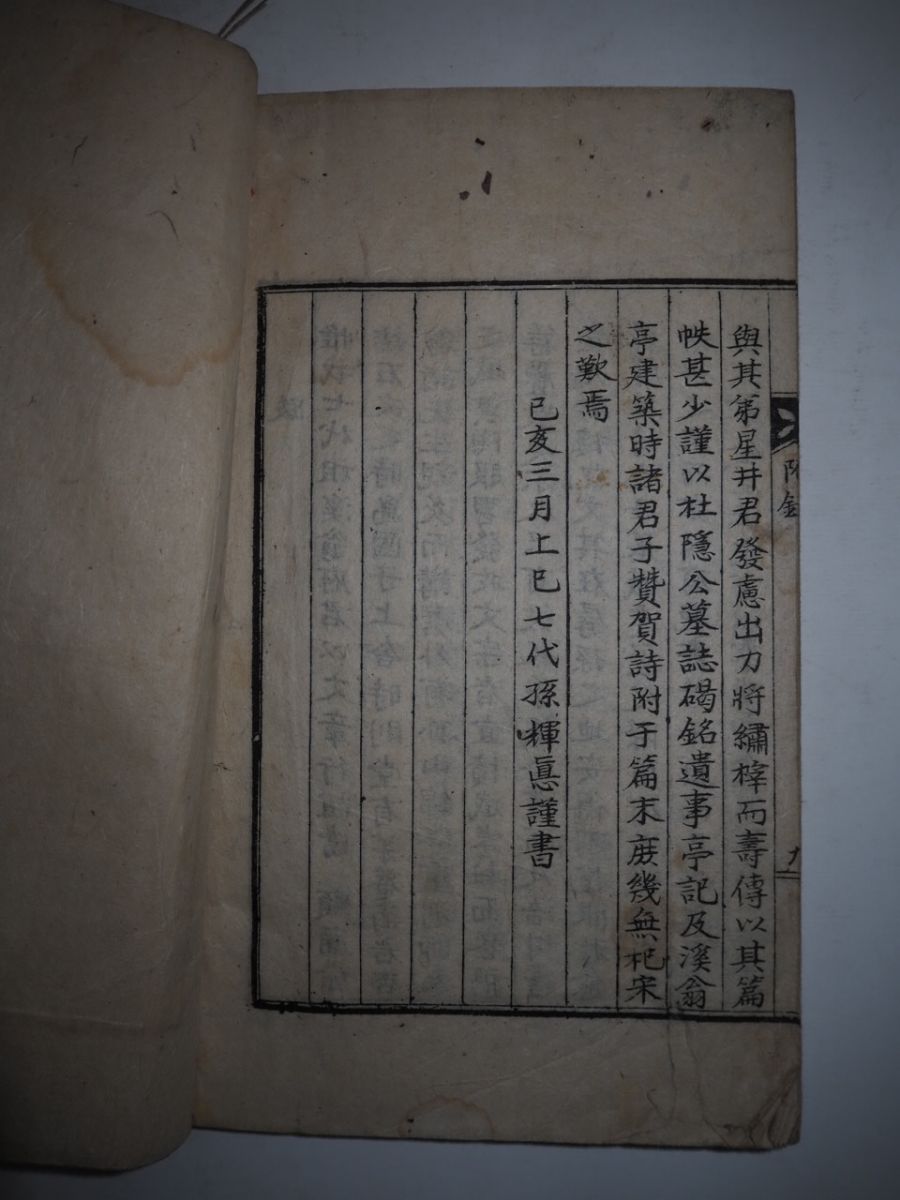 附錄
與其弟星井君發慮出力將繡榟而壽傳以其篇
帙甚少謹以杜隱公墓誌碣銘遺事亭記及溪翁
亭建築時諸君子贊賀詩附于篇末庶幾無杞宋
之歎焉
己亥三月上巳七代孫輝眞謹書